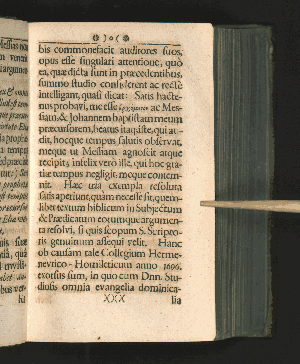 305
bis commonefacit auditores suos,
opus esse singulari attentione, quò
ea, quæ dicta sunt in præcedentibus,
summo studio considerent ac rectè
intelligant, quasi dicat: Satis hacte-
nus probavi, me esse ac Mes-
siam, & Johannem baptistam meum
præcursorem, beatus itaq; iste, qui au-
dit, hocque tempus salutis observat,
meque ut Messiam agnoscit atque
recipit, infelix verò ille, qui hoc gra-
tiæ tempus negligit, meque contem-
nit. Hæc tria exempla resoluta
satis aperiunt, quàm necesse sit, quem-
libet textum biblicum in Subjectum
& Prædicatum eorumque argumen-
ta resolvi, si quis scopum S. Scriptu-
ræ genuinum assequi velit. Hanc
ob causam tale Collegium Herme-
nevtico-Homileticum anno 1696.
exorsus sum, in quo cum Dnn. Stu-
diosis omnia evangelia dominica-
XXX lia